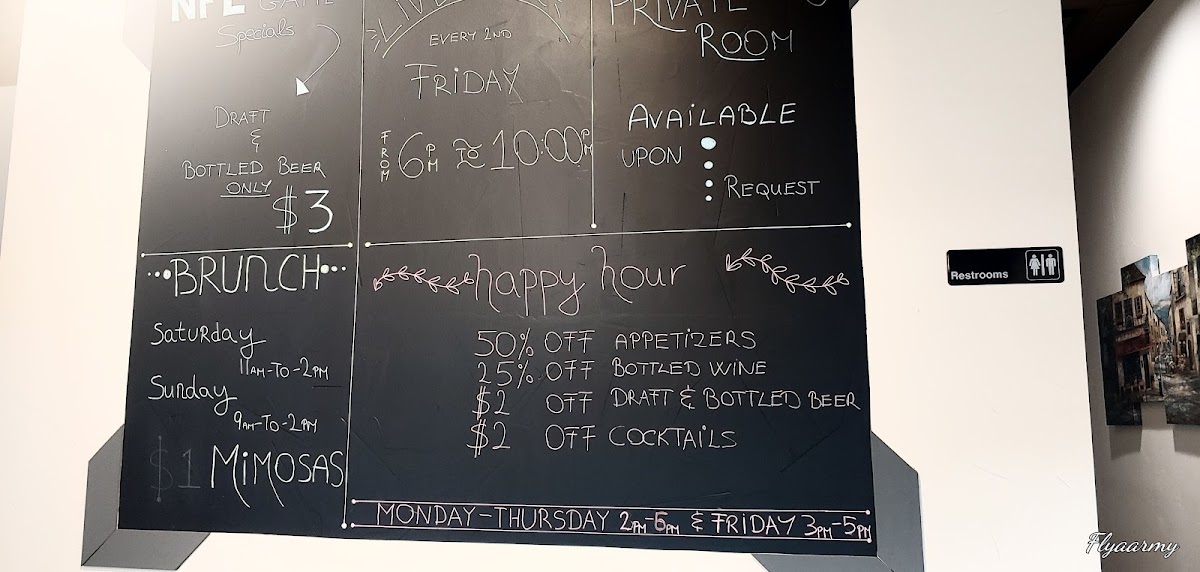 NFL GAME
Specials
DRAFT
&
BOTTLED BEER
ONLY
$3
LIVE
EVERY 2ND
FRIDAY
FROM 6PM TO 10:00PM
PRIVATE
ROOM
AVAILABLE
UPON
REQUEST
BRUNCH
Saturday
11AM-TO-2PM
Sunday
9AM-TO-2PM
$1 MIMOSAS
happy hour
50% OFF APPETIZERS
25% OFF BOTTLED WINE
$2 OFF DRAFT & BOTTLED BEER
$2 OFF COCKTAILS
MONDAY-THURSDAY 2PM-6PM & FRIDAY 3PM-5PM
Restrooms
Flyaarmy